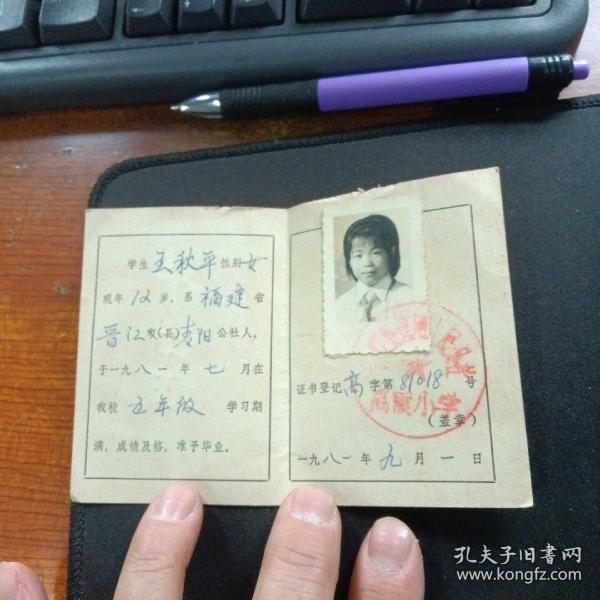 学生 王秋平 性别 女
现年 12 岁，系 福建 省
晋江 (县) 青阳 公社人。
于一九八一年 七 月在
我校 五年级 学习期
满，成绩及格，准予毕业。
证书登记 高 字第 81018 号
小学
(盖章)
一九八一年 九 月 一 日
孔夫子旧书网
www.kongfz.com